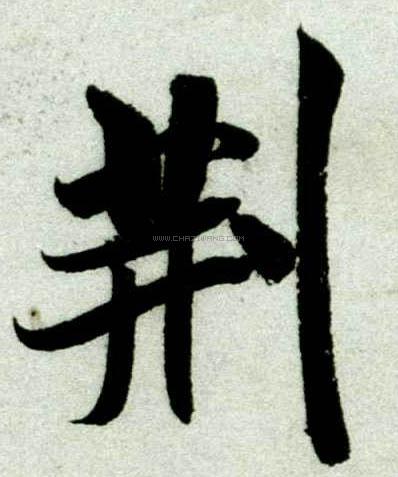 荆
WWW.CHAZIWANG.COM